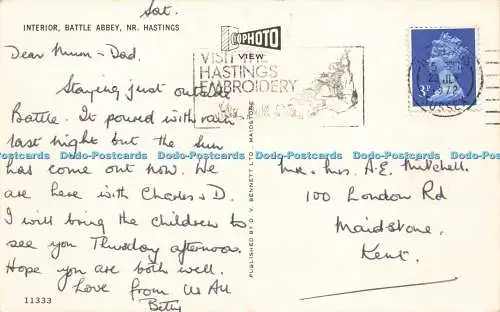 Sat.
INTERIOR, BATTLE ABBEY, NR. HASTINGS
Dear Mum - Dad.
Staying just outside
Battle. It poured with rain
last night but the sun
has come out now. We
are here with Charles & D.
I will bring the children to
see you Thursday afternoon.
Hope you are both well.
Love from us All
Betty
11333
PHOTO
VIEW
VISIT THE
HASTINGS
EMBROIDERY
PUBLISHED BY D. V. BENNETT LTD. MAIDSTONE
3P
1972
SUSSEX
Mr. Mrs. A.E. Mitchell.
100 London Rd
Maidstone.
Kent.
Dodo-Postcards Dodo-Postcards Dodo-Postcards Dodo-Postcards Dodo-Postcards Dodo-Postcards